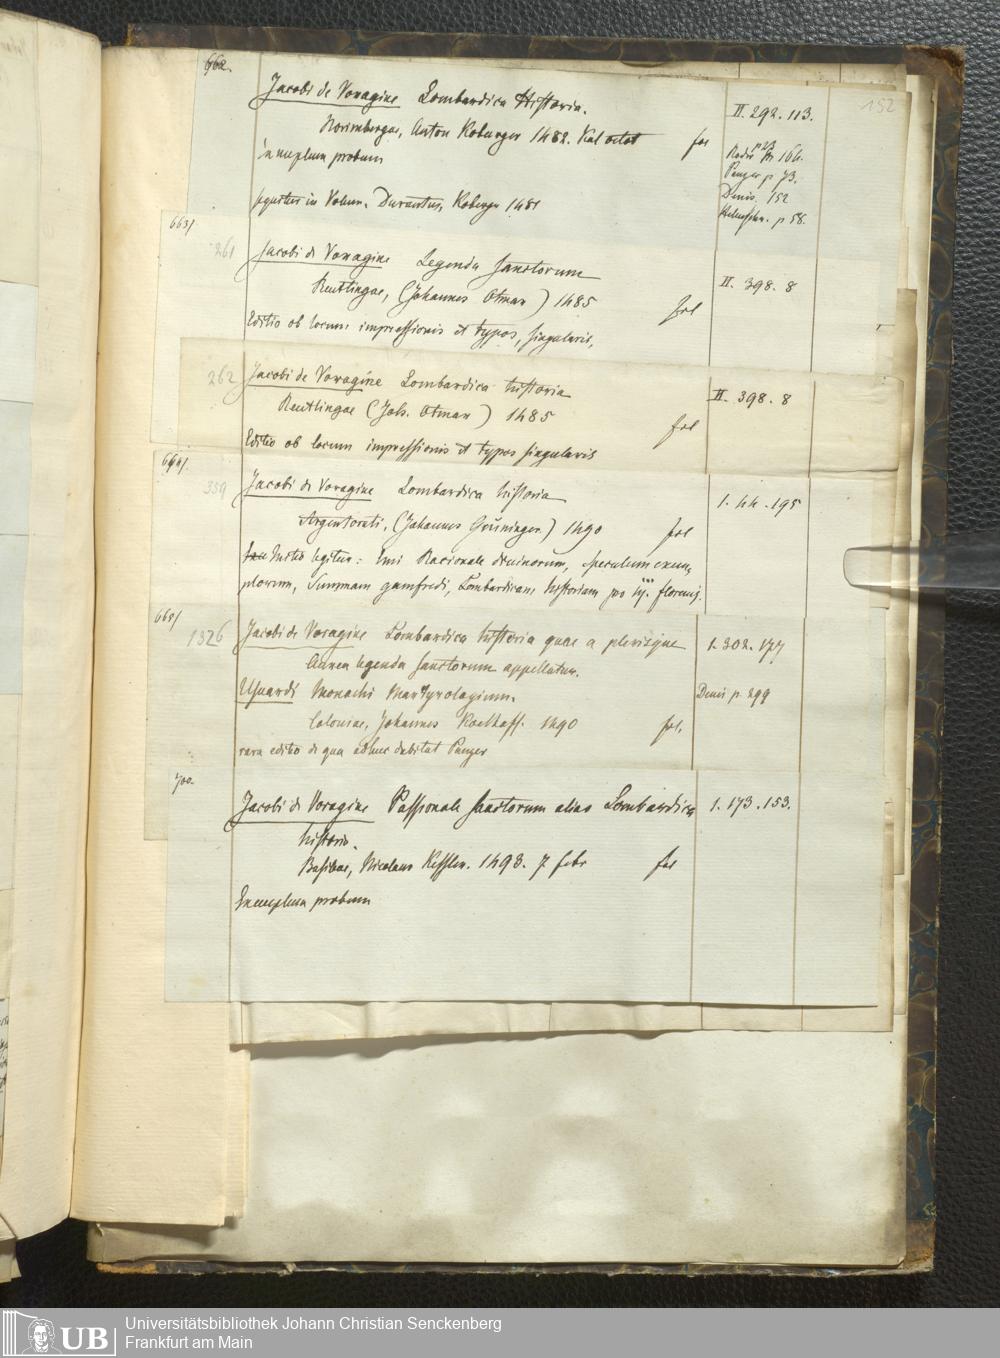 152
662.
Jacobi de Voragine Lombardica Historia.
Norimbergae, Anton Koburger 1482. Kal octob fol
II. 292. 113.
Exemplum probum
p 164.
Panzer p 73.
Denis. 152
p 58.
in Volum. Durantus, Koberger 1481
663/
261
Jacobi de Voragine Legenda Sanctorum
Reutlingae, (Johannes Otmar) 1485 fol
II. 398. 8
Editio ob locum impressionis et typos, singularis.
262
Jacobi de Voragine Lombardica historia
Reutlingae (Joh. Otmar) 1485 fol
II. 398. 8
Editio ob locum impressionis et typos singularis
664/.
359
Jacobi de Voragine Lombardica historia
Argentorati, (Johannes Grüninger.) 1490 fol
1. 44. 195
Initio legitur: Emi Racionale divinorum, speculum exem,
plorum, Summam gamfredi, Lombardicam historiam pro iij. floren.
665/
1326
Jacobi de Voragine Lombardica historia quae a plerisque
Aurea legenda sanctorum appellatur.
1. 302. 177
Usuardi Monachi Martyrologium.
Denis p. 299
Coloniae, Johannes Koelhoff. 1490 fol.
rara editio de qua adhuc dubitat Panzer
700.
Jacobi de Voragine Passionale sanctorum alias Lombardica
historia.
1. 173. 153.
Basileae, Nicolaus Kessler. 1493. 7 febr fol
Exemplum probum
UB
Universitätsbibliothek Johann Christian Senckenberg
Frankfurt am Main